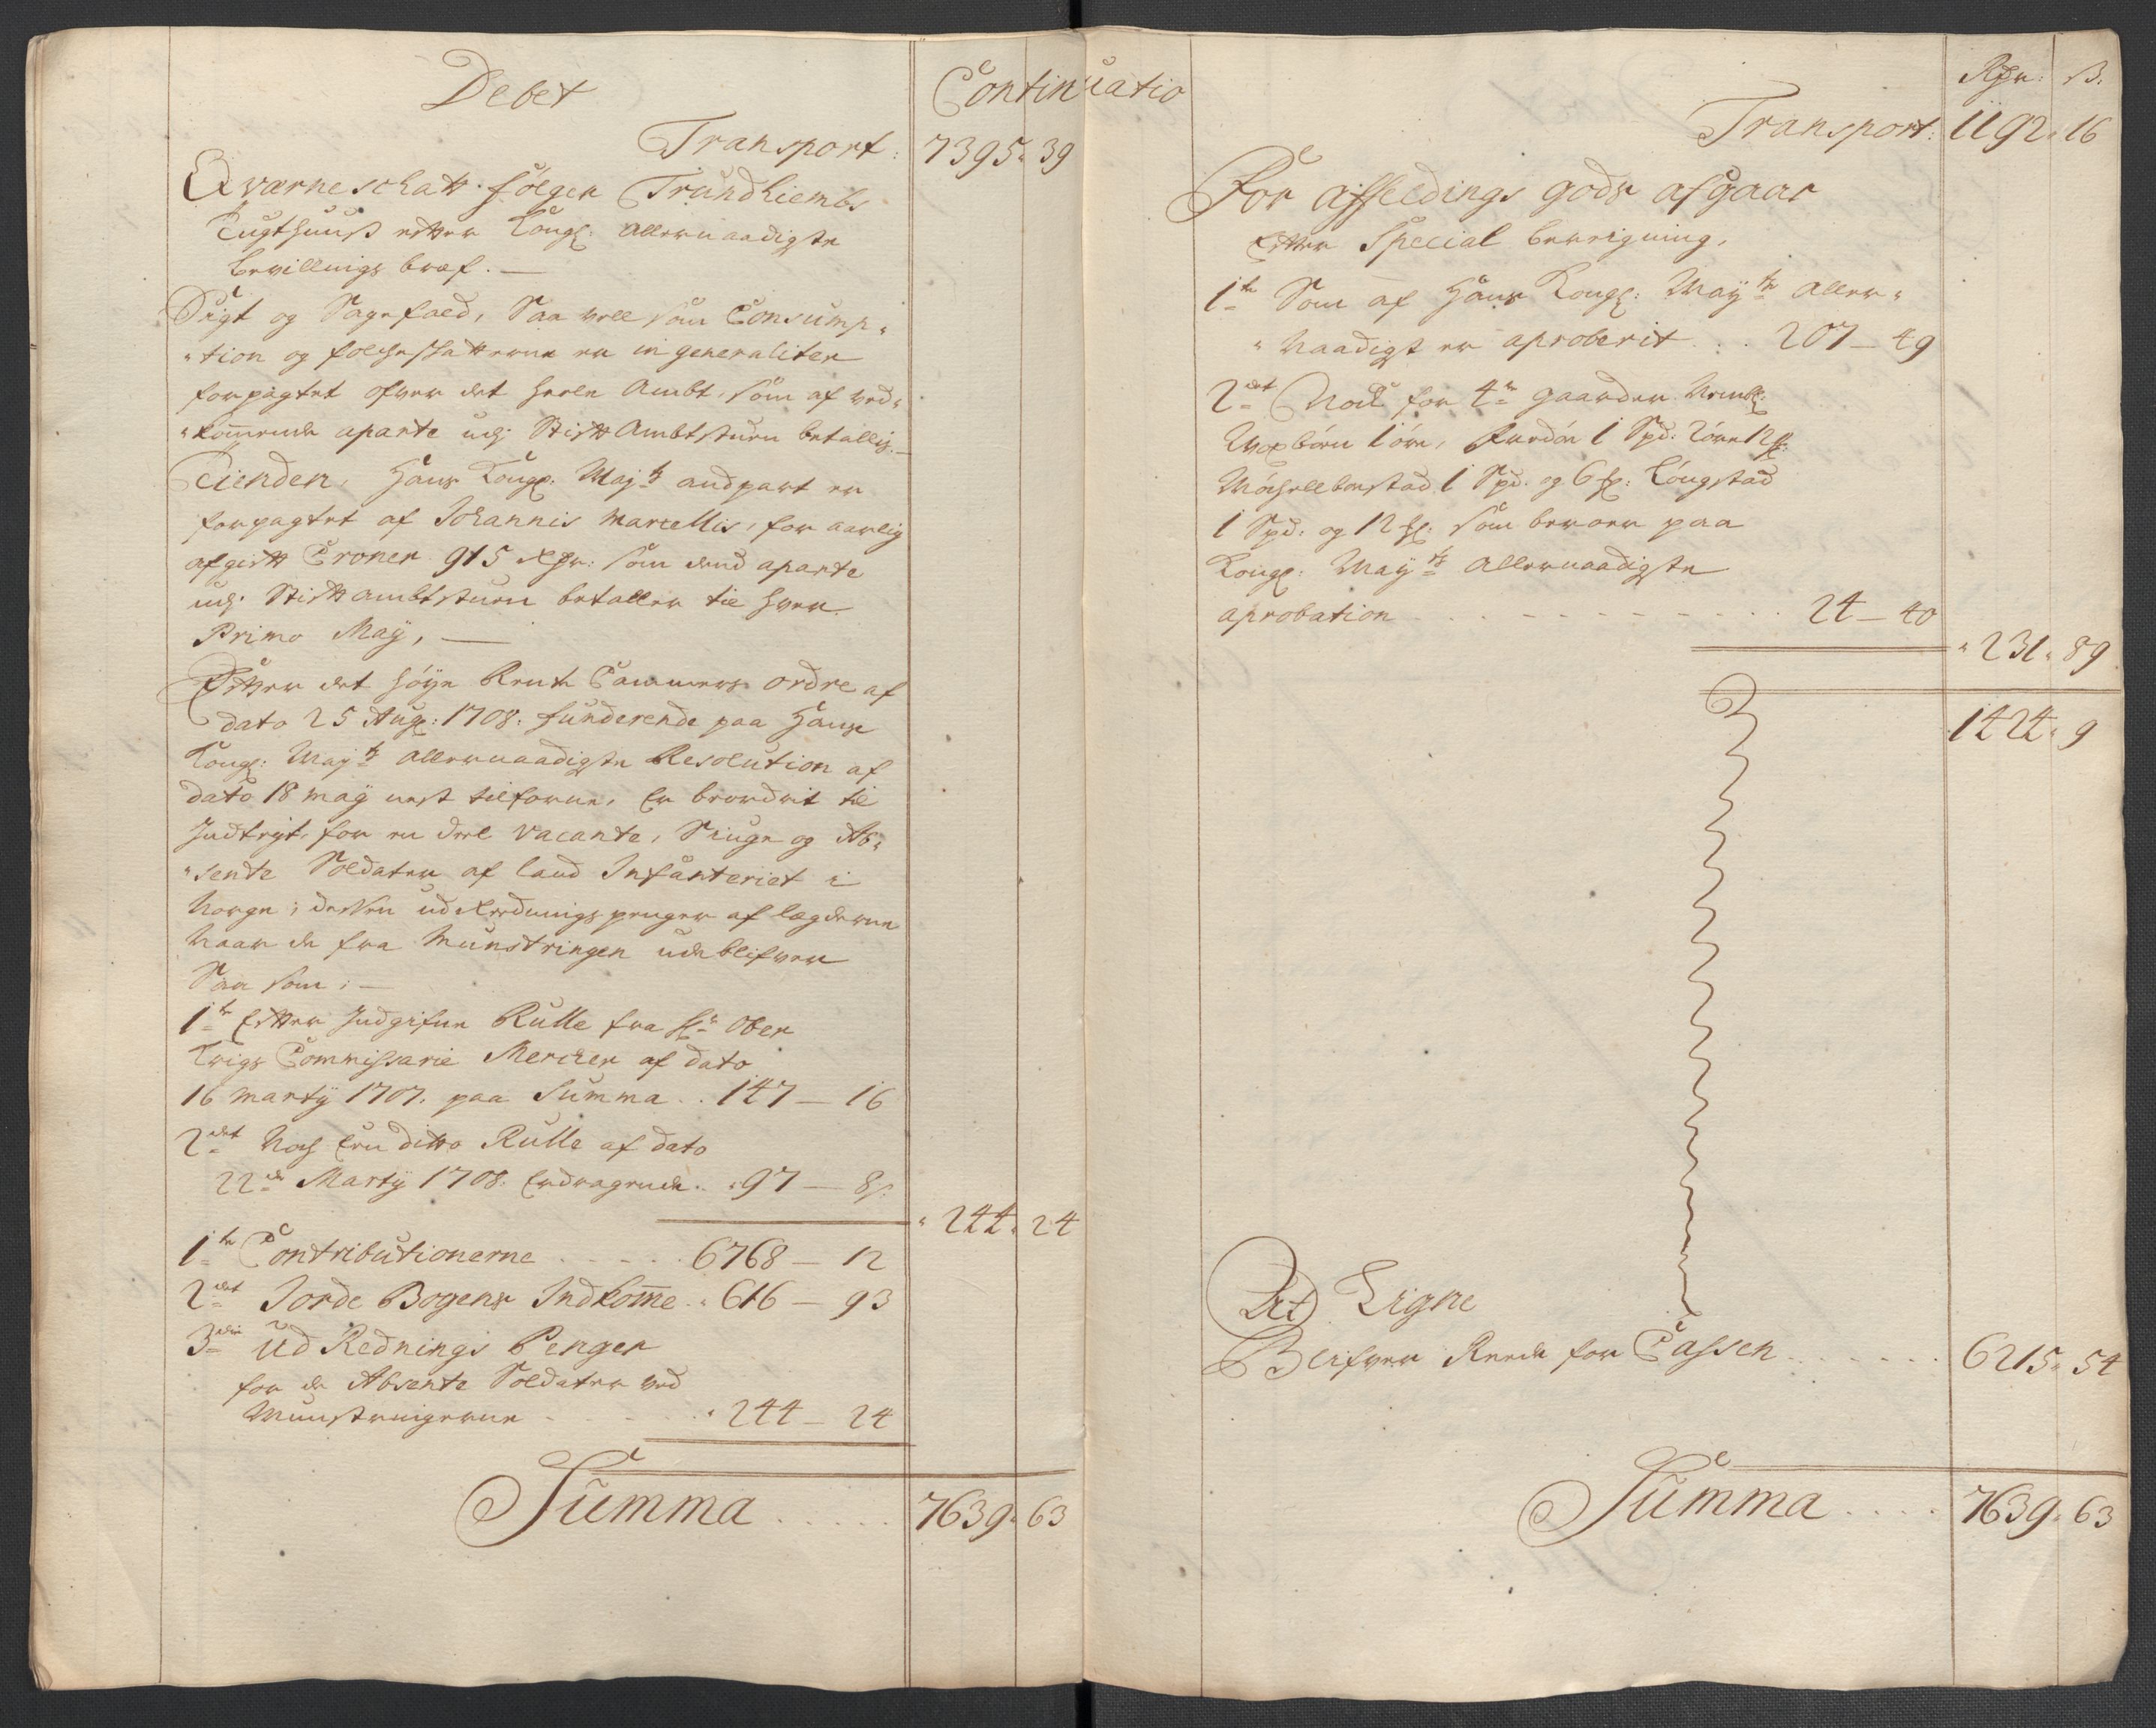 Debet
Continuatio
Transport: 7395" 39
Qværneschatt følger Trundhiembs
Tugthuuß efter Kongl: Allernaadigste
bevillings bref. —
Sigt og Sagefald, Saa vell som Consump"
"tion og folcheskatterne er in generaliter
forpagtet ofver det heele Ambt, som af ved"
"kommende aparte udj Stiftambtstuen betallis. —
Tienden, Hans Kongl: Maj:ts andpart er
forpagtet af Johannis Marcellis, for aarlig
afgift Croner 915 Rdr: som dend aparte
udj Stiftambtstuen betaller til hver
Primo Maÿ, —
Efter det høÿe Rente Cammers ordre af
dato 25 Aug: 1708. funderende paa Hans
Kongl: Maj:ts Allernaadigste Resolution af
dato 18 maÿ nest tilforne, er beordrit til
Indtegt, for en deel vacante, Siuge og Ab"
"sente Soldater af land Infanteriet i
Norge, dessen udRednings penger af lægderne
Naar de fra Munstringen udeblifver
Saa som: —
1te Efter Indgifne Rulle fra Hr Ober
Krigs Commissarie Mercker af dato
16 Martÿ 1707. paa Summa .. 147 — 16
2det Noch een ditto Rulle af dato
22de Martÿ 1708. bedragende .. 97 — 8ß.
" 244" 24
1te Contributionerne . . . . . 6768 — 12
2det Jorde Bogens Indkomme . " 616 — 93
3die Ud Rednings Penger
for de Absente Soldater ved
Munstringerne . . . . " 244 — 24
Summa . . . . . 7639" 63
Rdr: ß.
Transport: 1192" 16
For affældings gods afgaar
Efter Special beregning,
1te Som af Hans Kongl: Maÿ:ts Aller"
"naadigst er aproberit . . . 207 — 49
2det Noch for 4re gaarder Nembl:
1 øre, 1 Spd: 2 øre 12
1 Spd: og 6
1 Spd: og 12 som beroer paa
Kongl: Maÿ:ts Allernaadigste
aprobation . . . . . . . . . 24 — 40
" 231" 89
1424" 9
Det Ligne
Blifver Reede for Cassen . . . . . . 6215" 54
Summa . . . . 7639" 63